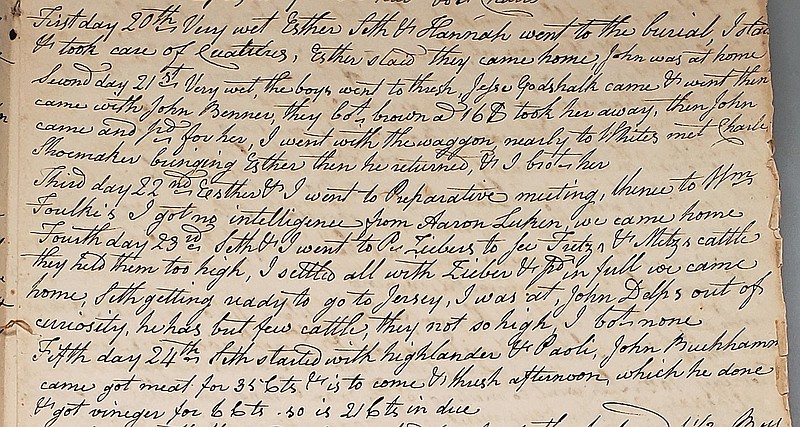 First day 20th Very wet Esther Seth & Hannah went to the burial, I staid
& took care of Creatures, Esther staid they came home, John was at home
Second day 21st Very wet, the boys went to thresh, Jesse Godshalk came & went then
came with John Benner, they bot brown @ 16 D took her away, then John
came and pd for her, I went with the waggon nearly to Whites met Charle
Shoemaker bringing Esther then he returned, & I brot her
Third day 22nd Easther & I went to Preparative meeting, thence to Wm
Foulke's I got no intelligence from Aaron Luken, we came home
Fourth day 23rd Seth & I went to Zeibers to see Fretz's & Mitzs cattle
they held them too high, I settled all with Zieber & pd in full we came
home, Seth getting ready to go to Jersey, I was at John Delps out of
curiosity, he has but few cattle, they not so high, I bot none
Fifth day 24th Seth started with highlander & Paoli, John Buckhamm
came got meat for 35 Cts & is to come & thresh afternoon, which he done
& got vineger for 6 Cts so is 21 Cts in due